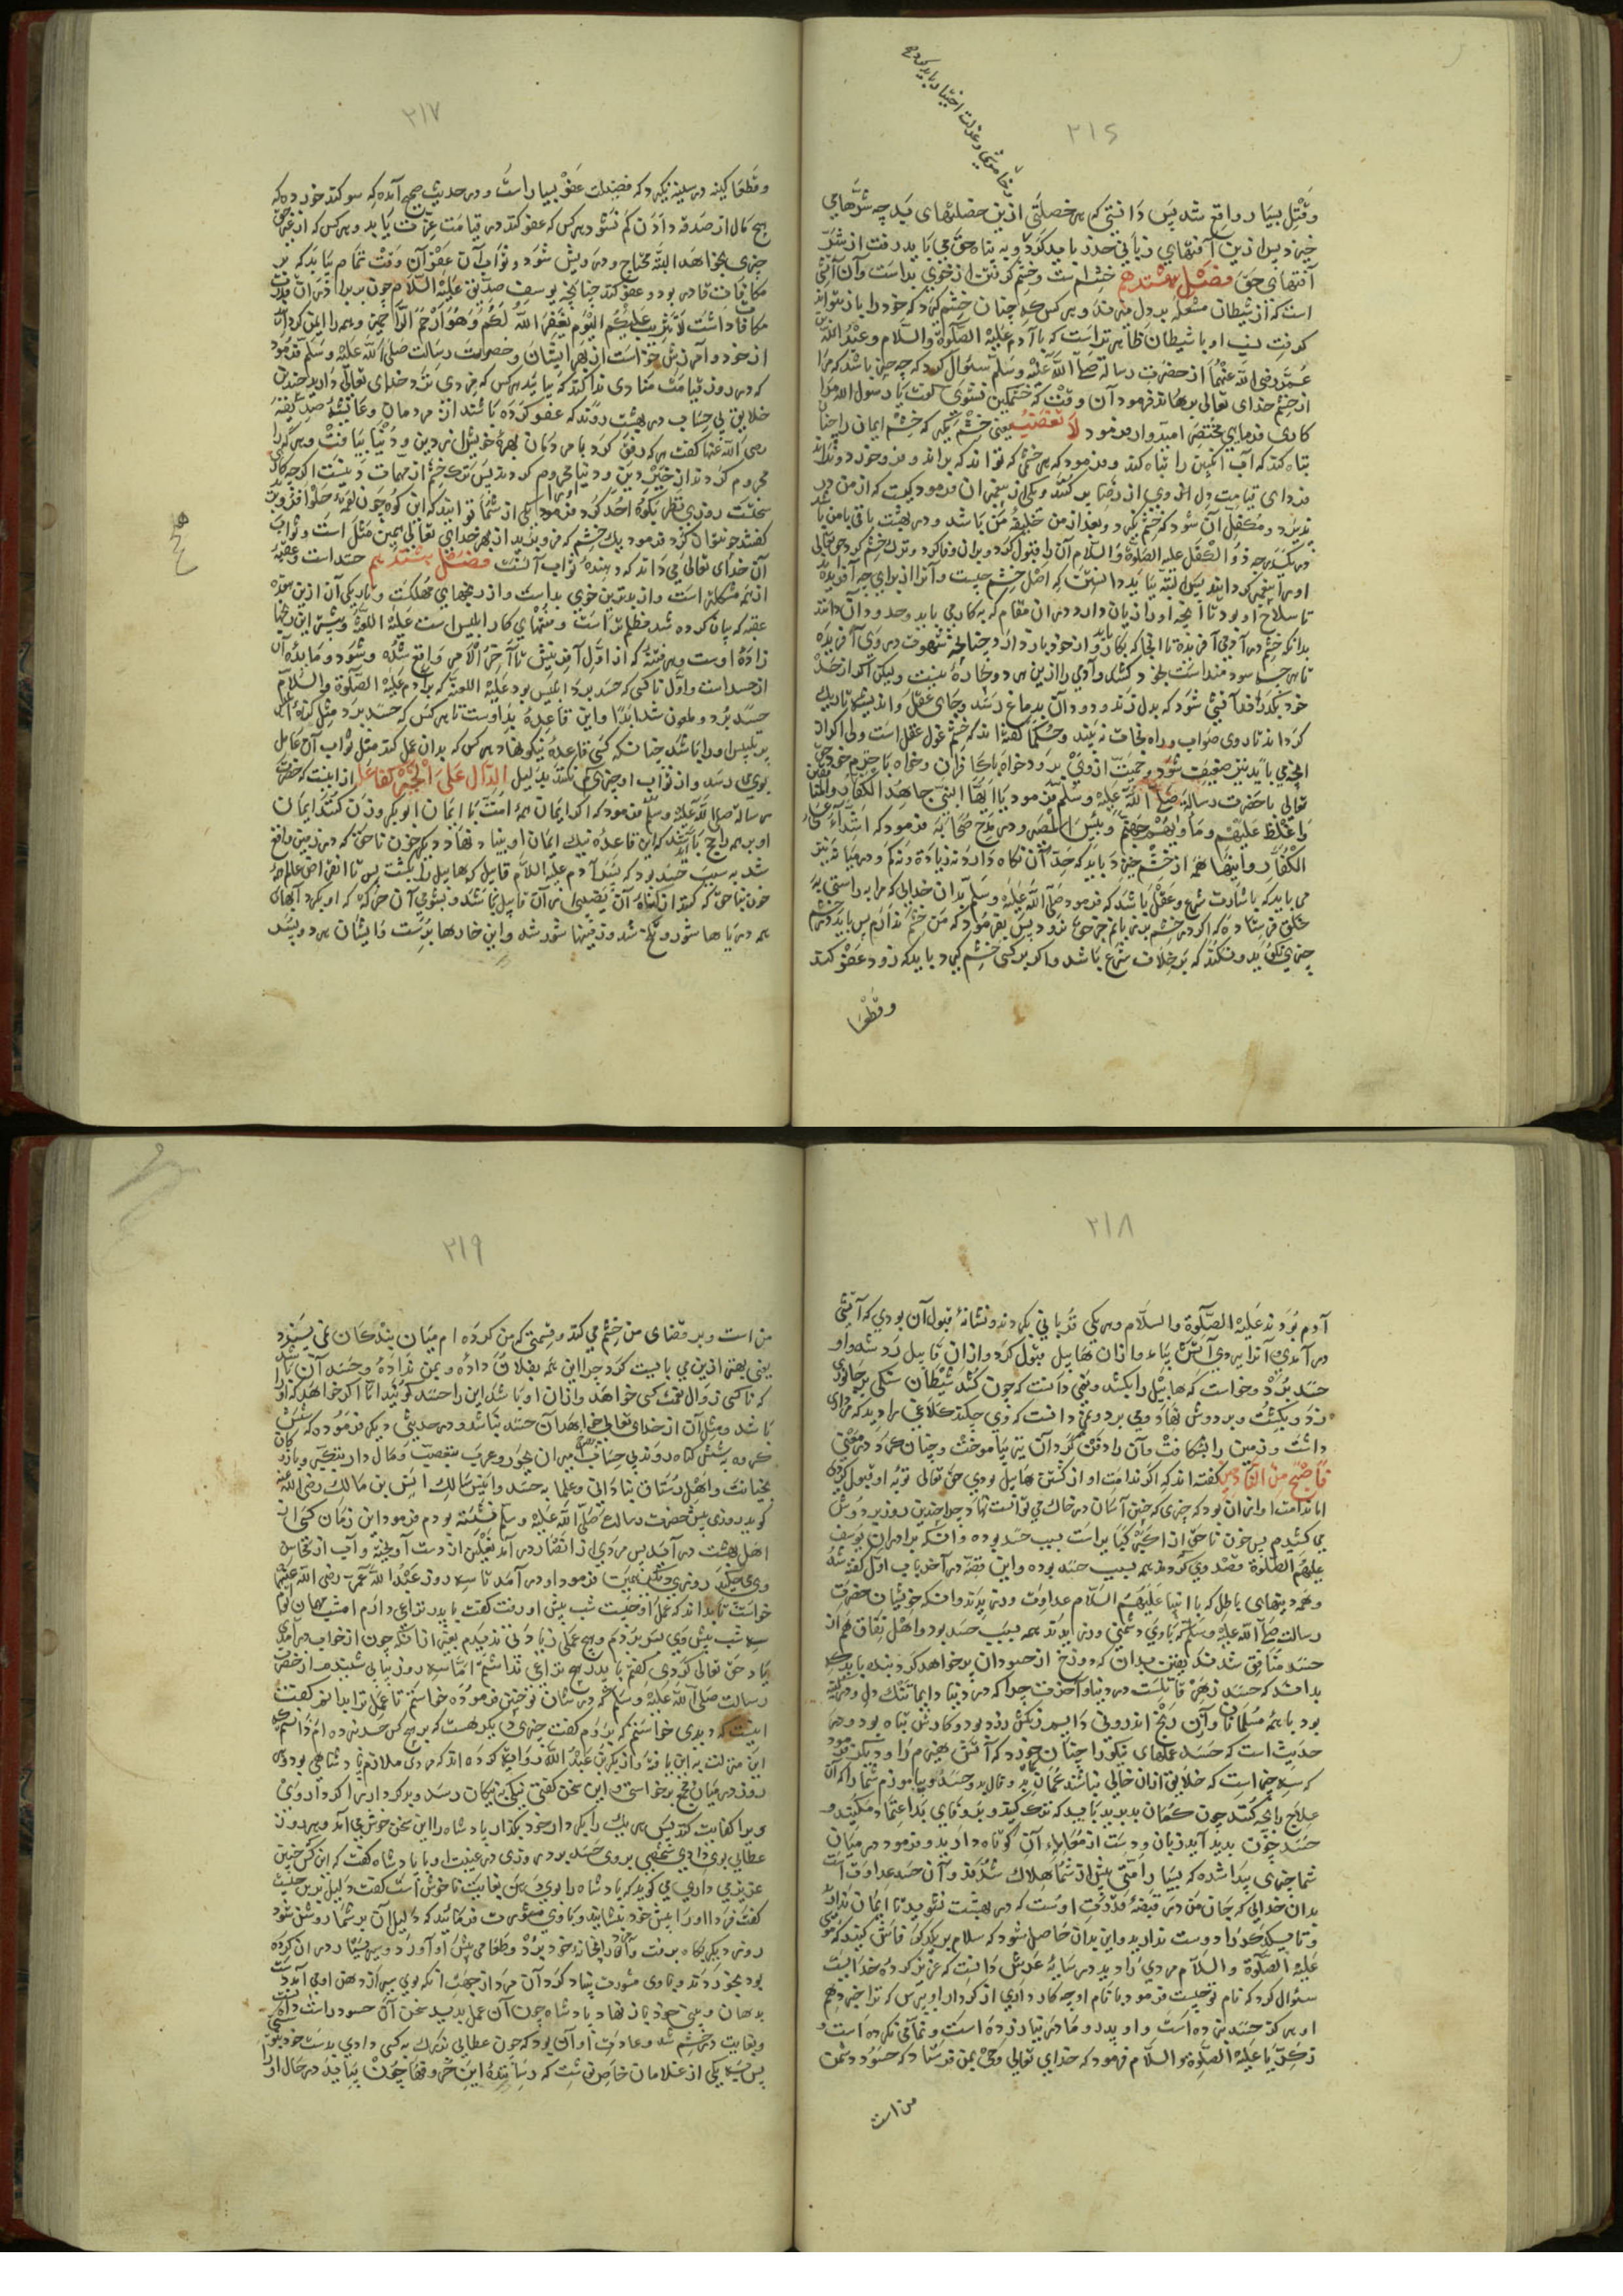 خاموشی و عزلت اختیار باید کردن
۲۱۶
وقتل بسیار واقع شد پس دانستی که هر خصلتی ازین خصلتهای بد چه شرهای می
خیزد پس ازین آفتهای زبانی حذر باید کرد و به پناه حق می باید رفت از شر
آفتهای حق فصل هشتدهم خشم است و خشم کرفتن از خوی بد است و آن آتشی
است که از شیطان مشعله بر دل می زند و هر کس که چنان خشم کیرد که خود را باز نتواند
کرفت نسب او با شیطان ظاهرتر است که با آدم علیه الصلوة والسلام و عبد الله بن
عمر رضی الله عنهما از حضرت رسالت صلی الله علیه وسلم سئوال کرد که چه چیز باشد که مرا
از خشم خدای تعالی برهاند فرمود آن وقت که خشمکین نشوی کفت یا رسول الله مرا
کاری فرمای مختصر امیدوار فرمود لا تغضب یعنی خشم مکیر که خشم ایمان را چنان
تباه کند که آب انکبین را تباه کند و فرمود که هر خشمی که تواند که براند و فرو خورد و نراند
فردای قیامت دل او از رضا پر کنند و یکی از پیغمبران فرمود کیست که از من در
پذیرد و متکفل آن شود که خشم نکیرد و بعد از من خلیفه من باشد و در بهشت باقی با من باشد
ذو الکفل علیه الصلوة والسلام آن را قبول کرد و بر آن وفا کرد و ترک خشم کرد حق تعالی
او را پیغمبر کردانید پس البته باید دانستن که اصل خشم چیست و آنرا از برای چه آفریده
تا سلاح او بود تا آنچه او را زیان دارد در آن مقام که به کار می باید وحد و دان دانند
بدانکه خشم در آدمی آفریده تا آنجا که بکار آید از خود باز دارد چنانچه شهوت در وی آفریده
تا هر چه سودمند است بخود کشد و آدمی را ازین هر دو چاره نیست ولیکن اکر از حد
خود بکذرد آتشی شود که بدل زند و دود آن بدماغ رسد و جای عقل و اندیشه تاریک
کرداند تا روی صواب و راه نجات نبیند و حکما کفته اند که خشم غول عقل است ولی اکر از
آنچه می باید نیز ضعیف شود بی حمیت از وی برود خواه با کافران و خواه با حرم خود حق
تعالی با حضرت رسالت صلی الله علیه وسلم فرمود یا ایها النبی جاهد الکفار والمنافقین
واغلظ علیهم ومأویهم جهنم وبئس المصیر و در مدح صحابه فرمود که اشداء علی
الکفار و اینها همه از خشم خیزد باید که حد آن نکاه دارد نه زیادة و نه کم و در میانه نیز
می باید که با اشارت شرع و عقل باشد که فرمود صلی الله علیه وسلم بدان خدایی که مرا براستی به
خلق فرستاده که اکر در خشم برمن باتم خروج نرود پس بفرمود که من خشم ندارم پس باید در خشم
چیزی نکوید و نکند که بر خلاف شرع باشد و اکر بر کسی خشم کیرد باید که زود عفو کند
وقطعا
۲۱۷
وقطعا کینه در سینه نکیرد که فضیلت عفو بسیار است و در حدیث صحیح آمده که سوکند خورده که
هیچ مال از صدقه دادن کم نشود هر کس که عفو کند در قیامت عزت یابد و هر کس که از غیر حق
چیزی بخواهد البته محتاج و درویش شود و ثواب آن عفو آن وقت تمام یابد که بر
مکافات قادر بود و عفو کند چنانچه یوسف صدیق علیه السلام چون بر برادران قدرت
مکافات داشت لا تثریب علیکم الیوم یغفر الله لکم وهو ارحم الراحمین و همه را ایمن کردانید
از خود و آمرزش خواست از بهر ایشان و حضرت رسالت صلی الله علیه وسلم فرمود
که در روز قیامت منادی ندا کند که بیایید هر کس که مزدی نزد خدای تعالی دارید چندین
خلایق بی حساب در بهشت روند که عفو کرده باشند از مردمان و عایشه صدیقه
رضی الله عنها کفت هر که رفق کرد با مردمان بهره خویش از دین و دنیا بیافت و هر که را
محروم کردند از خیر دین و دنیا محروم کردند پس ترک خشم از مهمات دینست اکرچه کار
سختست روزی نظر بکوه احد کرد فرمود یکی از شما تواند که این کوه چون لقمه حلوا فرو برد
کفتند چون توان کرد فرمود یک خشم که فرو برید از بهر خدای تعالی همین مثل است و ثواب
آن خدای تعالی می داند که دهنده ثواب آنست فصل هشتدهم حسد است وعقبه
از همه مشکلتر است و از بدترین خوی بد است و از رنجهای مهلکت و تاریکی آن ازین همه
عقبه که بیان کرده شد مظلمتر است و منتهای کار ابلیس است علیه اللعنه و بیشتر این رنجها
زاده اوست و هر فتنه که از اول آفرینش تا آخر الامر واقع شده و شود و مابده آن
از حسد است و اول تا کسی که حسد برد ابلیس بود علیه اللعنه که بر آدم علیه الصلوة والسلام
حسد برد و ملعون شد ابدا و این قاعده بد اوست تا هر کس که حسد برد مثل کناه آن
بر ابلیس او را باشد چنانکه کسی قاعده نیکو نهاد هر کس که بدان عمل کند مثل ثواب آن عامل
بوی می رسد و از ثواب او چیزی کم نکنند بدلیل الدال علی الخیر کفاعله از اینست که حضرت
رسالت صلی الله علیه وسلم فرمود که اکر ایمان همه امت با ایمان ابو بکر وزن کنند ایمان
او بر همه راجح باشد که این قاعده نیک ایمان او بنیاد نهاد و دیکر خون ناحق که در زمین واقع
شد به سبب حسد بود که پسر آدم علیه السلام قابیل که هابیل را بکشت پس تا انقراض عالم همه
خون بناحق که کنند از کناه آن نصیبی بر آن قابیل باشد و بشومی آن حرکت که او بکرد آبهای
همه دریاها شور و تلخ شد و زمینها شور شد و این خارها برست و ایشان هر دو پسر
۲۱۸
آدم بودند علیه الصلوة والسلام و هر یکی قربانی بکردند و نشانه قبول آن بودی که آتشی
در آمدی آنرا ببردی آتش بیامد و از آن هابیل قبول کرد و از آن قابیل رد شد و او
حسد برد و خواست که هابیل را بکشد و نمی دانست که چون کشد شیطان سنکی بر جانوری
زد و بکشت و بر دوش نهاد و می برد و نمی دانست که وی چکند کلاغی را دید که مرداری
داشت و زمین را بشکافت و آن را دفن کرد آن نیز بیاموخت و چنان کرد در معنی
فاصبح من النادمین کفته اند که اکر ندامت او از کشتن هابیل بودی حق تعالی توبه او قبول کردی
اما ندامت او از آن بود که چیزی که چنین آسان در خاک می توانست نهاد چرا چندین روز بر دوش
می کشیدم پس خون ناحق از اکبر کبایر است بسبب حسد بوده و آنکه برادران یوسف
علیهم الصلوة قصد وی کردند همه بسبب حسد بوده و این قصه در آخر باب اول کفته شد
و همه دینهای باطل که با انبیا علیهم السلام عداوت ورزیدند و آنکه خویشان حضرت
رسالت صلی الله علیه وسلم که با وی دشمنی ورزیدند همه بسبب حسد بود و اهل نفاق هم از
حسد منافق شدند یقین بدان که دوزخ از حسودان پر خواهد کرد بنده باید که
بدانند که حسد زهر قاتلست در دنیا و آخرت چرا که در دنیا دایما تنک دل و در کینه
بود با همه مسلمانان و این رنج اندرونی دایم رنکش زرد بود و کارش تباه بود و در
حدیث است که حسد عملهای نیکو را چنان خورد که آتش هیزم را و دیکر فرمود
که سه چیز است که خلایق از آن خالی نباشند کمان بد و فال بد و حسد و بیاموزم شما را که آن
علاج را چه کنند چون کمان بد برید باید که ترک کنید و بر وفای بد اعتماد مکنید و
حسد چون پدید آید زبان و دست از مقابله آن کوتاه دارید و فرمود در میان
شما چیزی پیدا شده که بسیار امتی پیش از شما هلاک شدند و آن حسد و عداوت است
بدان خدایی که جان من در قبضه قدرت اوست که در بهشت نشوید تا ایمان ندارید
و تا یکدیکر را دوست ندارید و این بدان حاصل شود که سلام بر یکدیکر فاش کنید که موسی
علیه الصلوة والسلام مردی را دید در سایه عرش دانست که عزیز کرده خداست
سئوال کرد که نام تو چیست فرمود با نام او چه کار داری از کردار او پرس که ترا خبر دهم
او هرکز حسد نبرده است و او پدر و مادر نیازرده است و نمامی نکرده است و
زکریا علیه الصلوة والسلام فرمود که خدای تعالی وحی بمن فرستاد که حسود دشمن
من است
۲۱۹
من است و بر قضای من خشم می کند و قسمتی که من کرده ام میان بندکان نمی پسندد
یعنی بهتر ازین می بایست کرد چرا این همه بفلان داده و بمن نداده و حسد آن باشد
که تا کسی زوال نعمت کسی خواهد و از آن او باشد این را حسد کویند اما اکر خواهد که او را
باشد و مثل آن از خدای تعالی خواهد آن حسد نباشد و در حدیثی دیکر فرموده که شش
کروه به شش کناه روند بی حساب امیران بجور و عرب بتعصب و مال دار بتکبر و بازرکان
بخیانت و اهل رستاق بنادانی و علما به حسد و انس مالک انس بن مالک رضی الله عنه
کوید روزی پیش حضرت رسالت صلی الله علیه وسلم نشسته بودم فرمود این زمان کسی از
اهل بهشت در آید پس مردی از انصار در آمد نعلین از دست آویخته و آب از محاسن
وی می چکید روزی دیکر همین فرمود او در آمد تا سه روز عبد الله عمر رضی الله عنهما
خواست تا بداند که عمل او چیست شب پیش او رفت کفت با پدر نزاعی دارم امشب مهمان توام
سه شب پیش وی بسر بردم و هیچ عملی زیادتی ندیدم بغیر از آنکه چون از خواب در آمدی
یاد حق تعالی کردی کفتم با پدر هیچ نزاعی نداشتم اما سه روز پیاپی شنیدم از حضرت
رسالت صلی الله علیه وسلم که در شان تو چنین فرموده خواستم تا عمل ترا بدانم کفت
اینست که دیدی خواستم که بروم کفت چیزی دیکر هست که بر هیچ کس حسد نبرده ام دانستم که
این منزلت به این یافته و از بکر بن عبد الله روایت کرده اند که مردی ملازم پادشاهی بود هر
روز در میان جمع برخاستی و این سخن کفتی نیکی به نیکان رسد و بد کردار را کردار وی
وی را کفایت کند پس هر یک را بکردار خود بکذار پادشاه را این سخن خوش می آمد و هر روز
عطایی بوی دادی شخصی بر وی حسد برد روزی در غیبت او با پادشاه کفت که این کس چنین
عزیز می داری می کوید که پادشاه را بوی دهن بغایت ناخوش است کفت دلیل برین چیست
کفت فردا او را پیش خود بنشانید و با وی مشورت فرمائید که دلیل آن بر شما روشن شود
روزی دیکر بکاه برفت و آن مرد را بخانه خود برد و طعامی پیش او آورد و سیر بسیار در آن کرده
بود بخوردند و با وی مشورت بنیاد کرد آن مرد از جهت آنکه بوی سیر از دهن او می آمد دست
بدهان و بینی خود باز نهاد پادشاه چون آن عمل بدید سخن آن حسود راست دانست
وبغایت در خشم شد و عادت او آن بود که چون عطایی بزرک به کسی دادی بدست خود نوشتی
پس به یکی از غلامان خاص نوشت که رساننده این حروف چون بیاید در حال او را